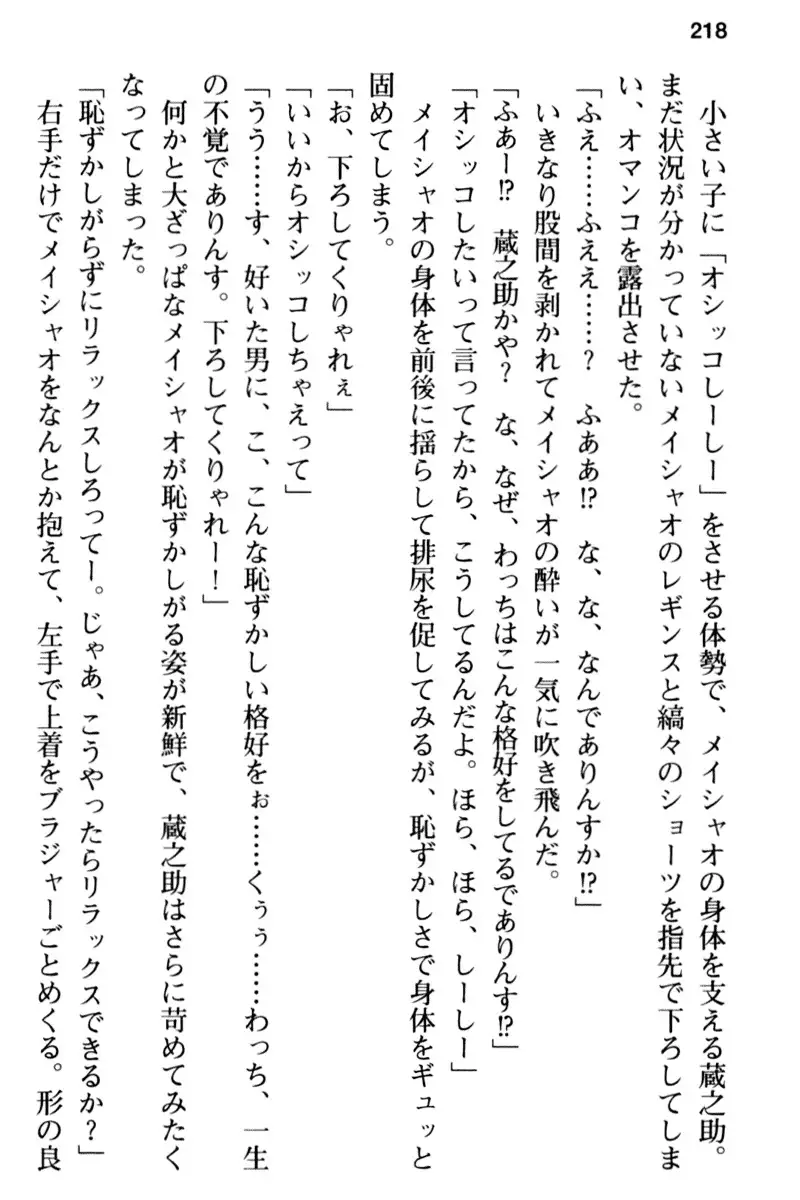 218
小さい子に「オシッコしーしー」をさせる体勢で、メイシャオの身体を支える蔵之助。
まだ状況が分かっていないメイシャオのレギンスと縞々のショーツを指先で下ろしてしま
い、オマンコを露出させた。
「ふえ……ふええ……？　ふああ!?　な、な、なんでありんすか!?」
いきなり股間を剥かれてメイシャオの酔いが一気に吹き飛んだ。
「ふあー!?　蔵之助かや？　な、なぜ、わっちはこんな格好をしてるでありんす!?」
「オシッコしたいって言ってたから、こうしてるんだよ。ほら、ほら、しーしー」
メイシャオの身体を前後に揺らして排尿を促してみるが、恥ずかしさで身体をギュッと
固めてしまう。
「お、下ろしてくりゃれぇ」
「いいからオシッコしちゃえって」
「うう……す、好いた男に、こ、こんな恥ずかしい格好をぉ……くぅぅ……わっち、一生
の不覚でありんす。下ろしてくりゃれー！」
何かと大ざっぱなメイシャオが恥ずかしがる姿が新鮮で、蔵之助はさらに苛めてみたく
なってしまった。
「恥ずかしがらずにリラックスしろってー。じゃあ、こうやったらリラックスできるか？」
右手だけでメイシャオをなんとか抱えて、左手で上着をブラジャーごとめくる。形の良